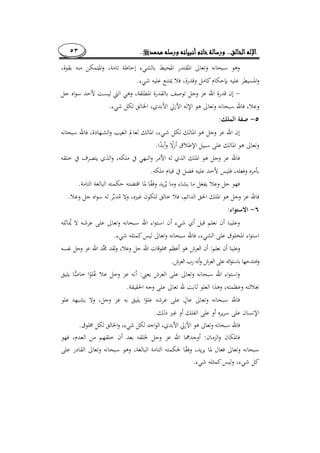 الإله الخالق.. ورسالة خاتم أنبيائه ورسله محمد ٥٣
وهو سبحانه وتعالى المقتدر المحيط بالشيء إحاطة تامة، والمتمكن منه بقوة،
والمسيطر عليه بإحكام كامل وقدرة، فلا يمتنع عليه شيء.
- إن قدرة الله عز وجل توصف بالقدرة المطلقة، وهي التي ليست لأحد سواه جل
وعلا، فالله سبحانه وتعالى هو الإله الأزلي الأبدي، الخالق لكل شيء.
٥- صفة الملك:
إن الله عز وجل هو المالك لكل شيء، المالك لعالم الغيب والشهادة، فالله سبحانه
وتعالى هو المالك على سبيل الإطلاق أزلًا وأبدًا.
فالله عز وجل هو الملك الذي له الأمر والنهي في ملكه، والذي يتصرف في خلقه
بأمره وفعله، فليس لأحد عليه فضل في قيام ملكه.
فهو جل وعلا يفعل ما يشاء وما يُريد وفقًا لما اقتضته حكمته البالغة التامة.
فالله عز وجل هو الملك الحق الدائم، فلا خالق للكون غيره، ولا مُدبِّر له سواه جل وعلا.
٦- الاستواء:
وعلينا أن نعلم قبل أي شيء أن استواء الله سبحانه وتعالى على عرشه لا يُماثله
استواء المخلوق على الشيء، فالله سبحانه وتعالى ليس كمثله شيء.
وعلينا أن نعلم: أن العرش هو أعظم مخلوقات الله جل وعلا، ولقد مجَّد الله عز وجل نفسه
وامتدحها باستوائه على العرش وأنه رب العرش.
واستواء الله سبحانه وتعالى على العرش يعني: أنه عز وجل علا عُلوًا خاصًّا يليق
بجلالته وعظمته، وهذا العلو ثابت لله تعالى على وجه الحقيقة.
فالله سبحانه وتعالى عالٍ على عرشه علوًا يليق به عز وجل، ولا يشبهه علو
الإنسان على سريره أو على الفلك أو غير ذلك.
فالله سبحانه وتعالى هو الأزلي الأبدي، الواجد لكل شيء، والخالق لكل مخلوق.
فالمكان والزمان: أوجدهما الله عز وجل لخلقه بعد أن خلقهم من العدم، فهو
سبحانه وتعالى فعال لما يريد، وفقًا لحكمته التامة البالغة، وهو سبحانه وتعالى القادر على
كل شيء، وليس كمثله شيء.